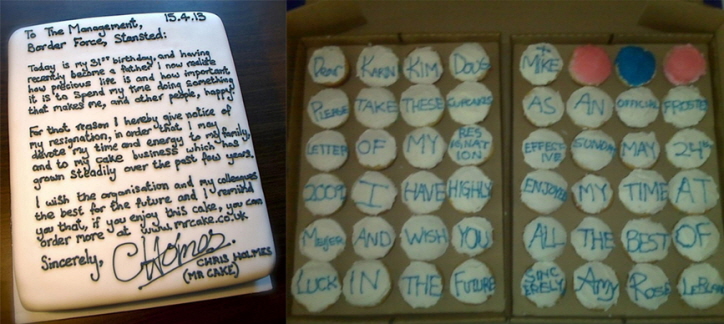 15.4.13
To The Management,
Border Force, Stansted:
Today is my 31st birthday, and having
recently become a father I now realise
how precious life is and how important
it is to spend my time doing something
that makes me, and other people, happy
For that reason I hereby give notice of
my resignation, in order that I may
devote my time and energy to my family,
and to my cake business which has
grown steadily over the past few years.
I wish the organisation and my colleagues
the best for the future and I remind
you that, if you enjoy this cake, you can
order more at www.mrcake.co.uk
Sincerely, CHolmes.
CHRIS HOLMES
(MR CAKE)
DEAR KARN KIM DOUG + MIKE
PLEASE TAKE THESE CUPCAKES AS AN OFFICIAL FROSTED
LETTER OF MY RESIGNATION EFFECTIVE SUNDAY MAY 24th
2009 I HAVE HIGHLY ENJOYED MY TIME AT
MEIJER AND WISH YOU ALL THE BEST OF
LUCK IN THE FUTURE SINCERELY AMY ROSE LEBLANC